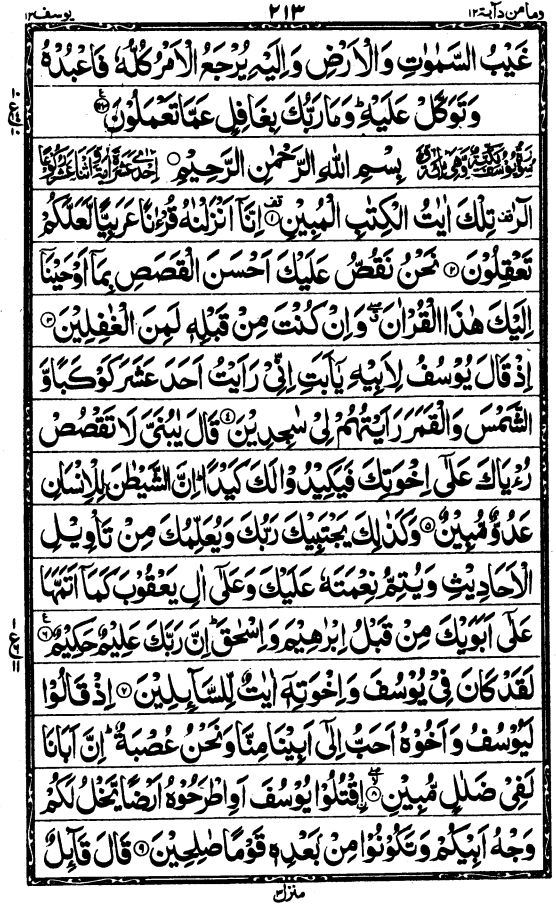 وما من دآبة ١٢ ٢١٣ يوسف ١٢
غَيْبُ السَّمٰوٰتِ وَالْاَرْضِ وَاِلَيْهِ يُرْجَعُ الْاَمْرُ كُلُّهٗ فَاعْبُدْهُ
وَتَوَكَّلْ عَلَيْهِ ؕ وَمَا رَبُّكَ بِغَافِلٍ عَمَّا تَعْمَلُوْنَ ﴿۱۲۳﴾
بِسْمِ اللهِ الرَّحْمٰنِ الرَّحِيْمِ
الٓرٰ ۟ تِلْكَ اٰيٰتُ الْكِتٰبِ الْمُبِيْنِ ﴿۱﴾ اِنَّاۤ اَنْزَلْنٰهُ قُرْءٰنًا عَرَبِيًّا لَّعَلَّكُمْ
تَعْقِلُوْنَ ﴿۲﴾ نَحْنُ نَقُصُّ عَلَيْكَ اَحْسَنَ الْقَصَصِ بِمَاۤ اَوْحَيْنَاۤ
اِلَيْكَ هٰذَا الْقُرْاٰنَ ۖ وَاِنْ كُنْتَ مِنْ قَبْلِهٖ لَمِنَ الْغٰفِلِيْنَ ﴿۳﴾
اِذْ قَالَ يُوْسُفُ لِاَبِيْهِ يٰۤاَبَتِ اِنِّيْ رَاَيْتُ اَحَدَ عَشَرَ كَوْكَبًا وَّ
الشَّمْسَ وَالْقَمَرَ رَاَيْتُهُمْ لِيْ سٰجِدِيْنَ ﴿۴﴾ قَالَ يٰبُنَيَّ لَا تَقْصُصْ
رُءْيَاكَ عَلٰۤى اِخْوَتِكَ فَيَكِيْدُوْا لَكَ كَيْدًا ؕ اِنَّ الشَّيْطٰنَ لِلْاِنْسَانِ
عَدُوٌّ مُّبِيْنٌ ﴿۵﴾ وَكَذٰلِكَ يَجْتَبِيْكَ رَبُّكَ وَيُعَلِّمُكَ مِنْ تَاْوِيْلِ
الْاَحَادِيْثِ وَيُتِمُّ نِعْمَتَهٗ عَلَيْكَ وَعَلٰۤى اٰلِ يَعْقُوْبَ كَمَاۤ اَتَمَّهَا
عَلٰۤى اَبَوَيْكَ مِنْ قَبْلُ اِبْرٰهِيْمَ وَاِسْحٰقَ ؕ اِنَّ رَبَّكَ عَلِيْمٌ حَكِيْمٌ ﴿۶﴾
لَقَدْ كَانَ فِيْ يُوْسُفَ وَاِخْوَتِهٖۤ اٰيٰتٌ لِّلسَّآئِلِيْنَ ﴿۷﴾ اِذْ قَالُوْا
لَيُوْسُفُ وَاَخُوْهُ اَحَبُّ اِلٰۤى اَبِيْنَا مِنَّا وَنَحْنُ عُصْبَةٌ ؕ اِنَّ اَبَانَا
لَفِيْ ضَلٰلٍ مُّبِيْنِ ﴿۸﴾ اِقْتُلُوْا يُوْسُفَ اَوِ اطْرَحُوْهُ اَرْضًا يَّخْلُ لَكُمْ
وَجْهُ اَبِيْكُمْ وَتَكُوْنُوْا مِنْ بَعْدِهٖ قَوْمًا صٰلِحِيْنَ ﴿۹﴾ قَالَ قَآئِلٌ
منزل ٣